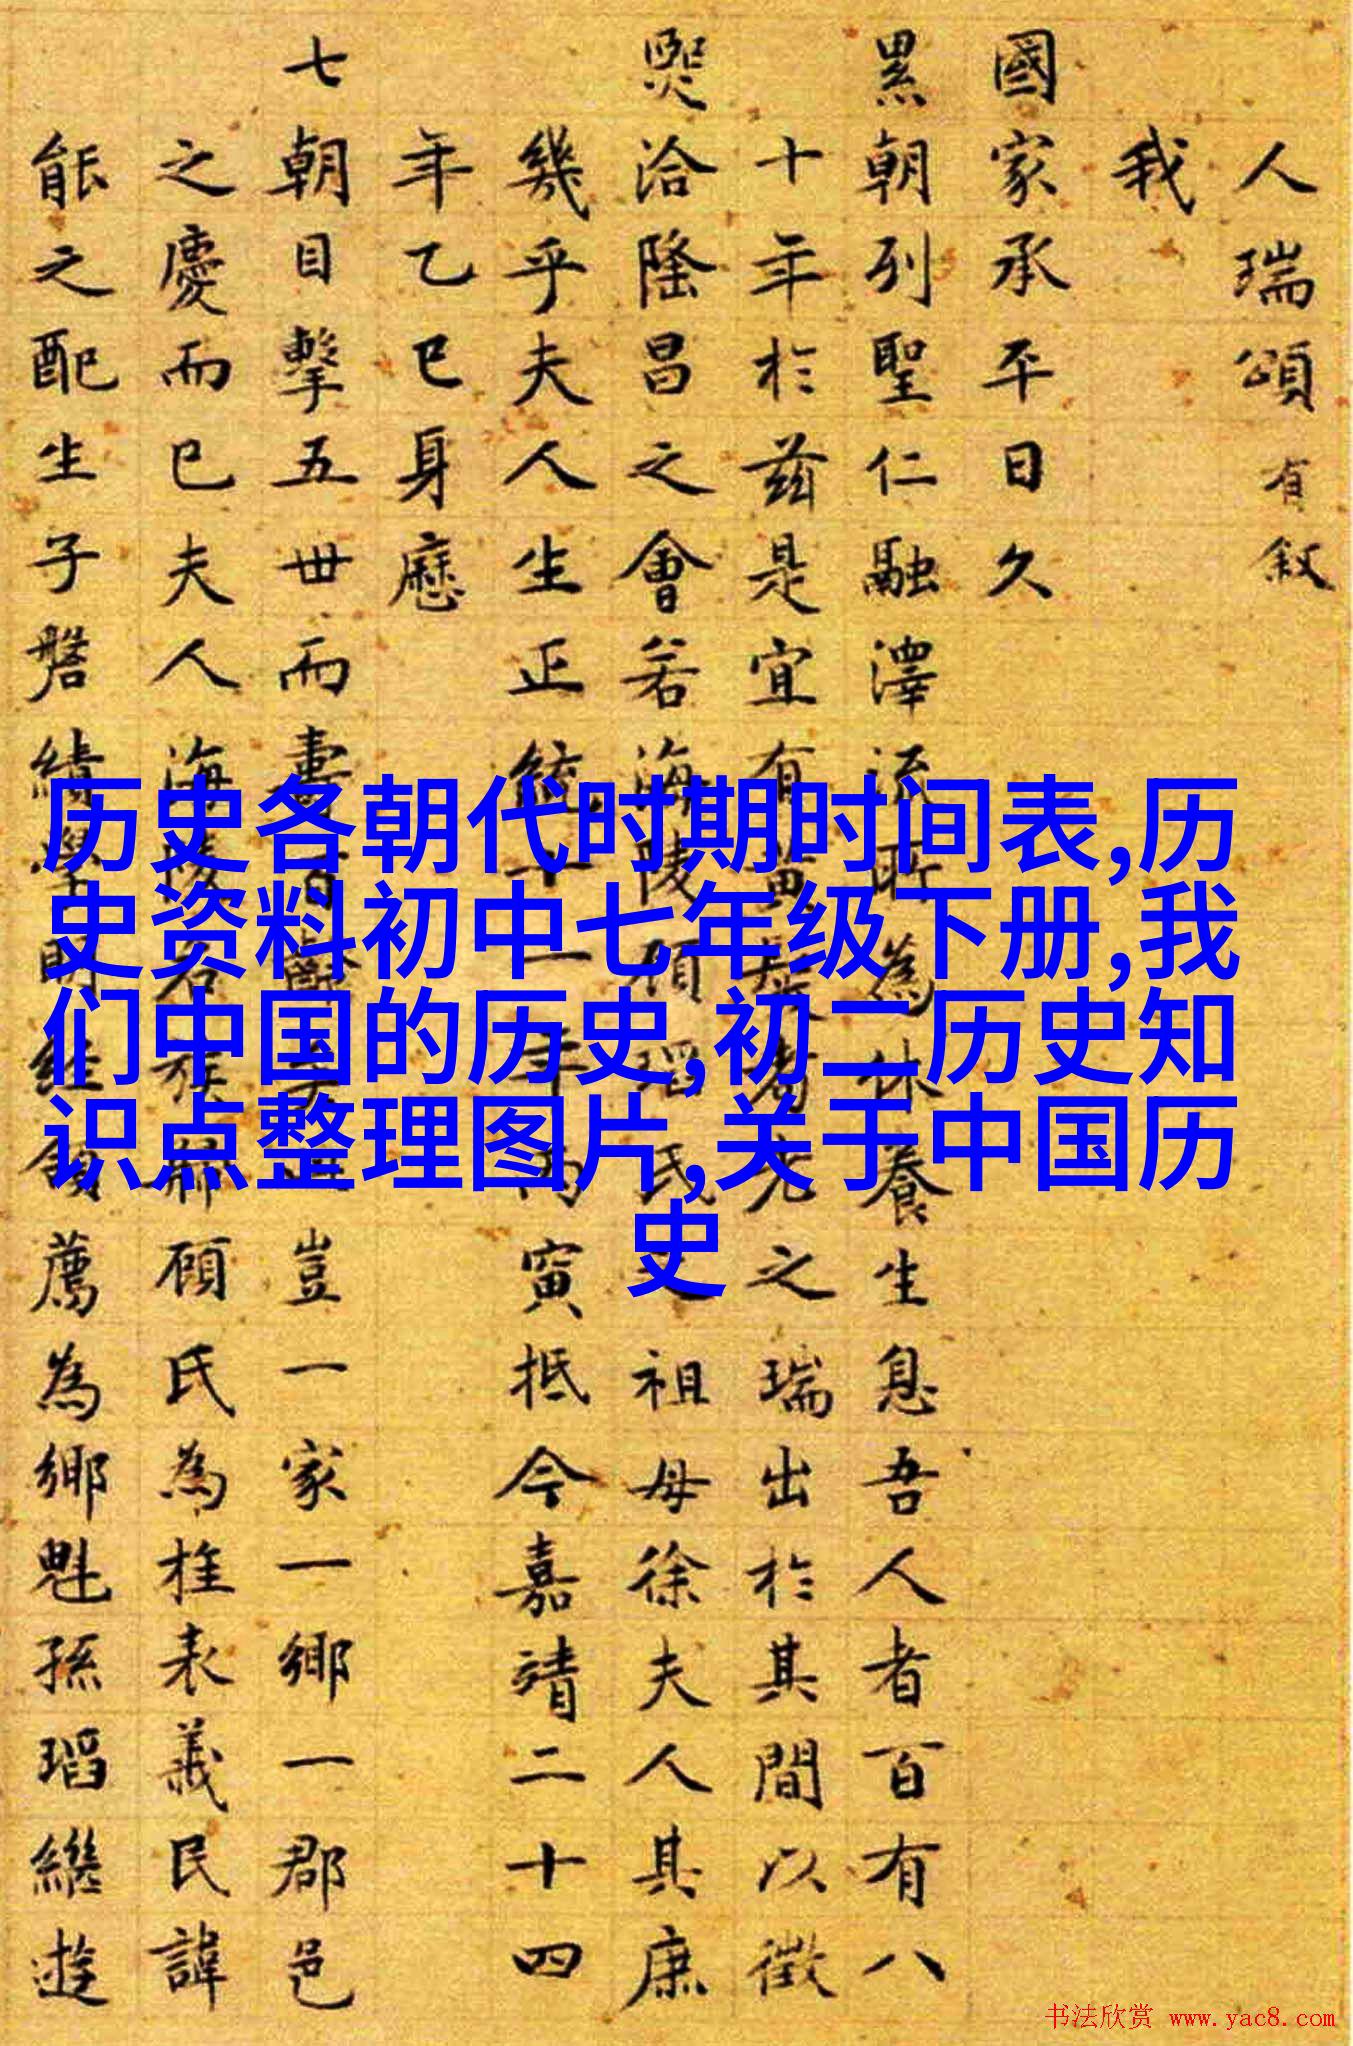 人瑞頌有叙
我
國家承平日久
累朝列聖仁融澤流所為休養生息吾人者百有八
十年於兹是宜有黃髮之瑞出於其間以徵
熙洽隆昌之會若海陵顧瑫氏之祖母徐夫人其庶
幾乎夫人生正統十一年丙寅抵今嘉靖二十四
年乙巳身歷
七朝目擊五丗而壽豈一家一鄉一郡邑
之慶而已夫人海陵右族歸顧氏為桂表義民諱
能之配生子磐績學明經領薦為鄉魁孫瑫繼遊
历史各朝代时期时间表,历
史资料初中七年级下册,我
们中国的历史,初二历史知
识点整理图片,关于中国历
史
书法欣赏 www.yac8.com